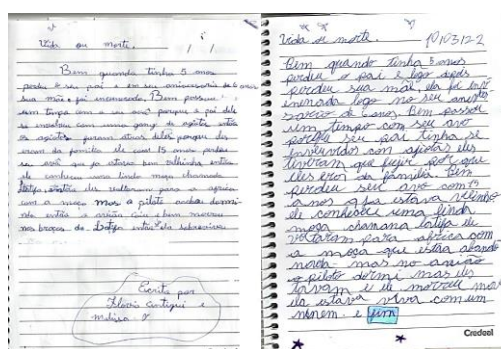 Vida ou morte. / /
Bem quando tinha 5 anos
perdeu o seu pai e em seu aniversario de 6 anos
sua mãe foi envenenada. Bem passou
um tempo com o seu avô porque o pai dele
se envolveu com uma gang de agiotas
os agiotas foram atras deles porque eles
eram da familia ele com 15 anos perdeu
seu avô que ja estava bem velhinho então
ele conheceu uma linda moça chamada
Latifa então eles voltaram para a africa
com a moça mas o piloto acaba dormi
ndo então o avião caiu e bem morreu
nos braços de Latifa então ela sobreviveu
Escrita por
Flavia e
melissa
Vida ou morte.
Bem quando tinha 5 anos
perdeu o pai e logo depois
perdeu sua mãe ela foi env
enenada logo no seu aniver
sario de 6 anos Bem passou
um tempo com seu avô
porque seu pai tinha se
involvidos com agiotas eles
tiveram que fugir por que
eles eram da familia bem
perdeu seu avo com 15
anos q ja estava velinho
ele conheceu uma linda
moça chamana latifa ele
voltaram para africa com
a moça que estão
mas no avião
o piloto dormi mas eles
e ele morreu mas
ela estava viva com um
nenem. e fim
Credeal